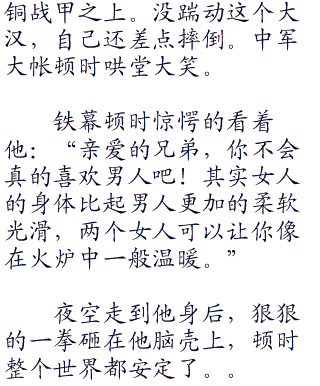 铜战甲之上。没踹动这个大
汉，自己还差点摔倒。中军
大帐顿时哄堂大笑。
铁幕顿时惊愕的看着
他：“亲爱的兄弟，你不会
真的喜欢男人吧！其实女人
的身体比起男人更加的柔软
光滑，两个女人可以让你像
在火炉中一般温暖。”
夜空走到他身后，狠狠
的一拳砸在他脑壳上，顿时
整个世界都安定了。。